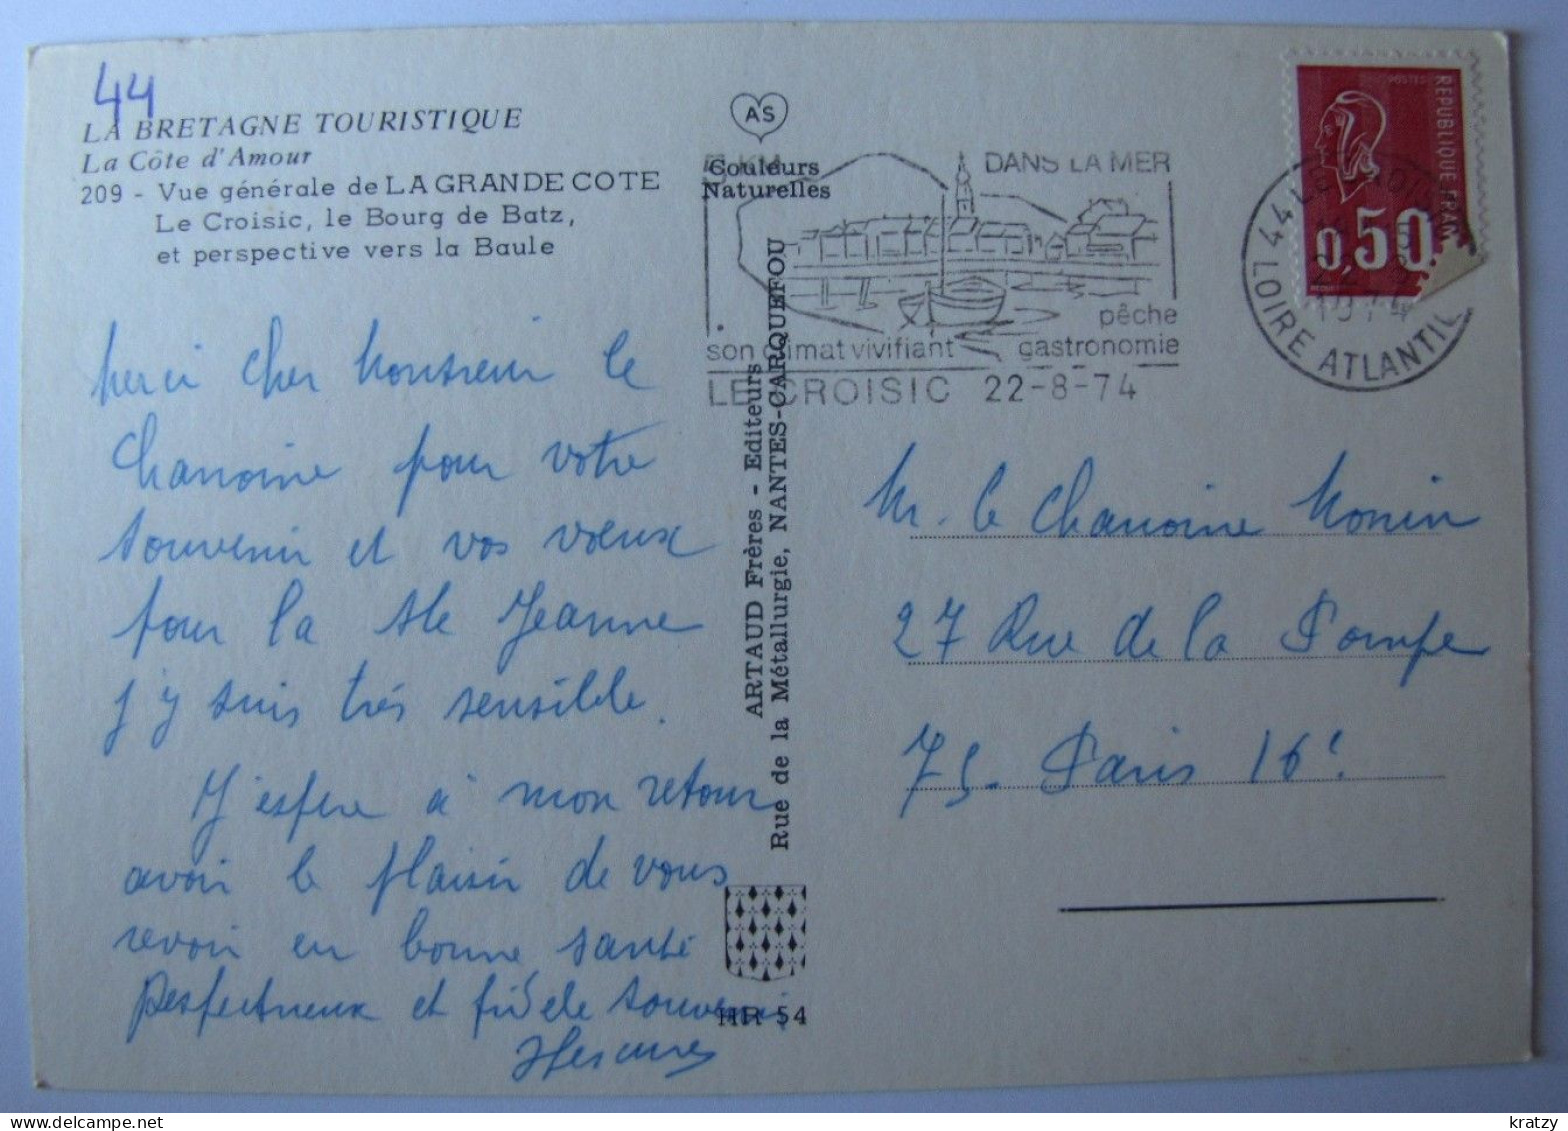 44
LA BRETAGNE TOURISTIQUE
La Côte d'Amour
209 - Vue générale de LA GRANDE COTE
Le Croisic, le Bourg de Batz,
et perspective vers la Baule
merci cher Monsieur le
Chanoine pour votre
souvenir et vos vœux
pour la Ste Jeanne
j'y suis très sensible.
J'espère à mon retour
avoir le plaisir de vous
revoir en bonne santé
Respectueux et fidèle souvenir
AS
Couleurs
Naturelles
ARTAUD Frères - Editeurs
Rue de la Métallurgie, NANTES-CARQUEFOU
MR 54
DANS LA MER
pêche
son climat vivifiant gastronomie
LE CROISIC 22-8-74
44 LOIRE ATLANTIQ
1974
REPUBLIQUE FRAN
0,50
M. le Chanoine Monin
27 Rue de la Pompe
75. Paris 16e.
kratzy